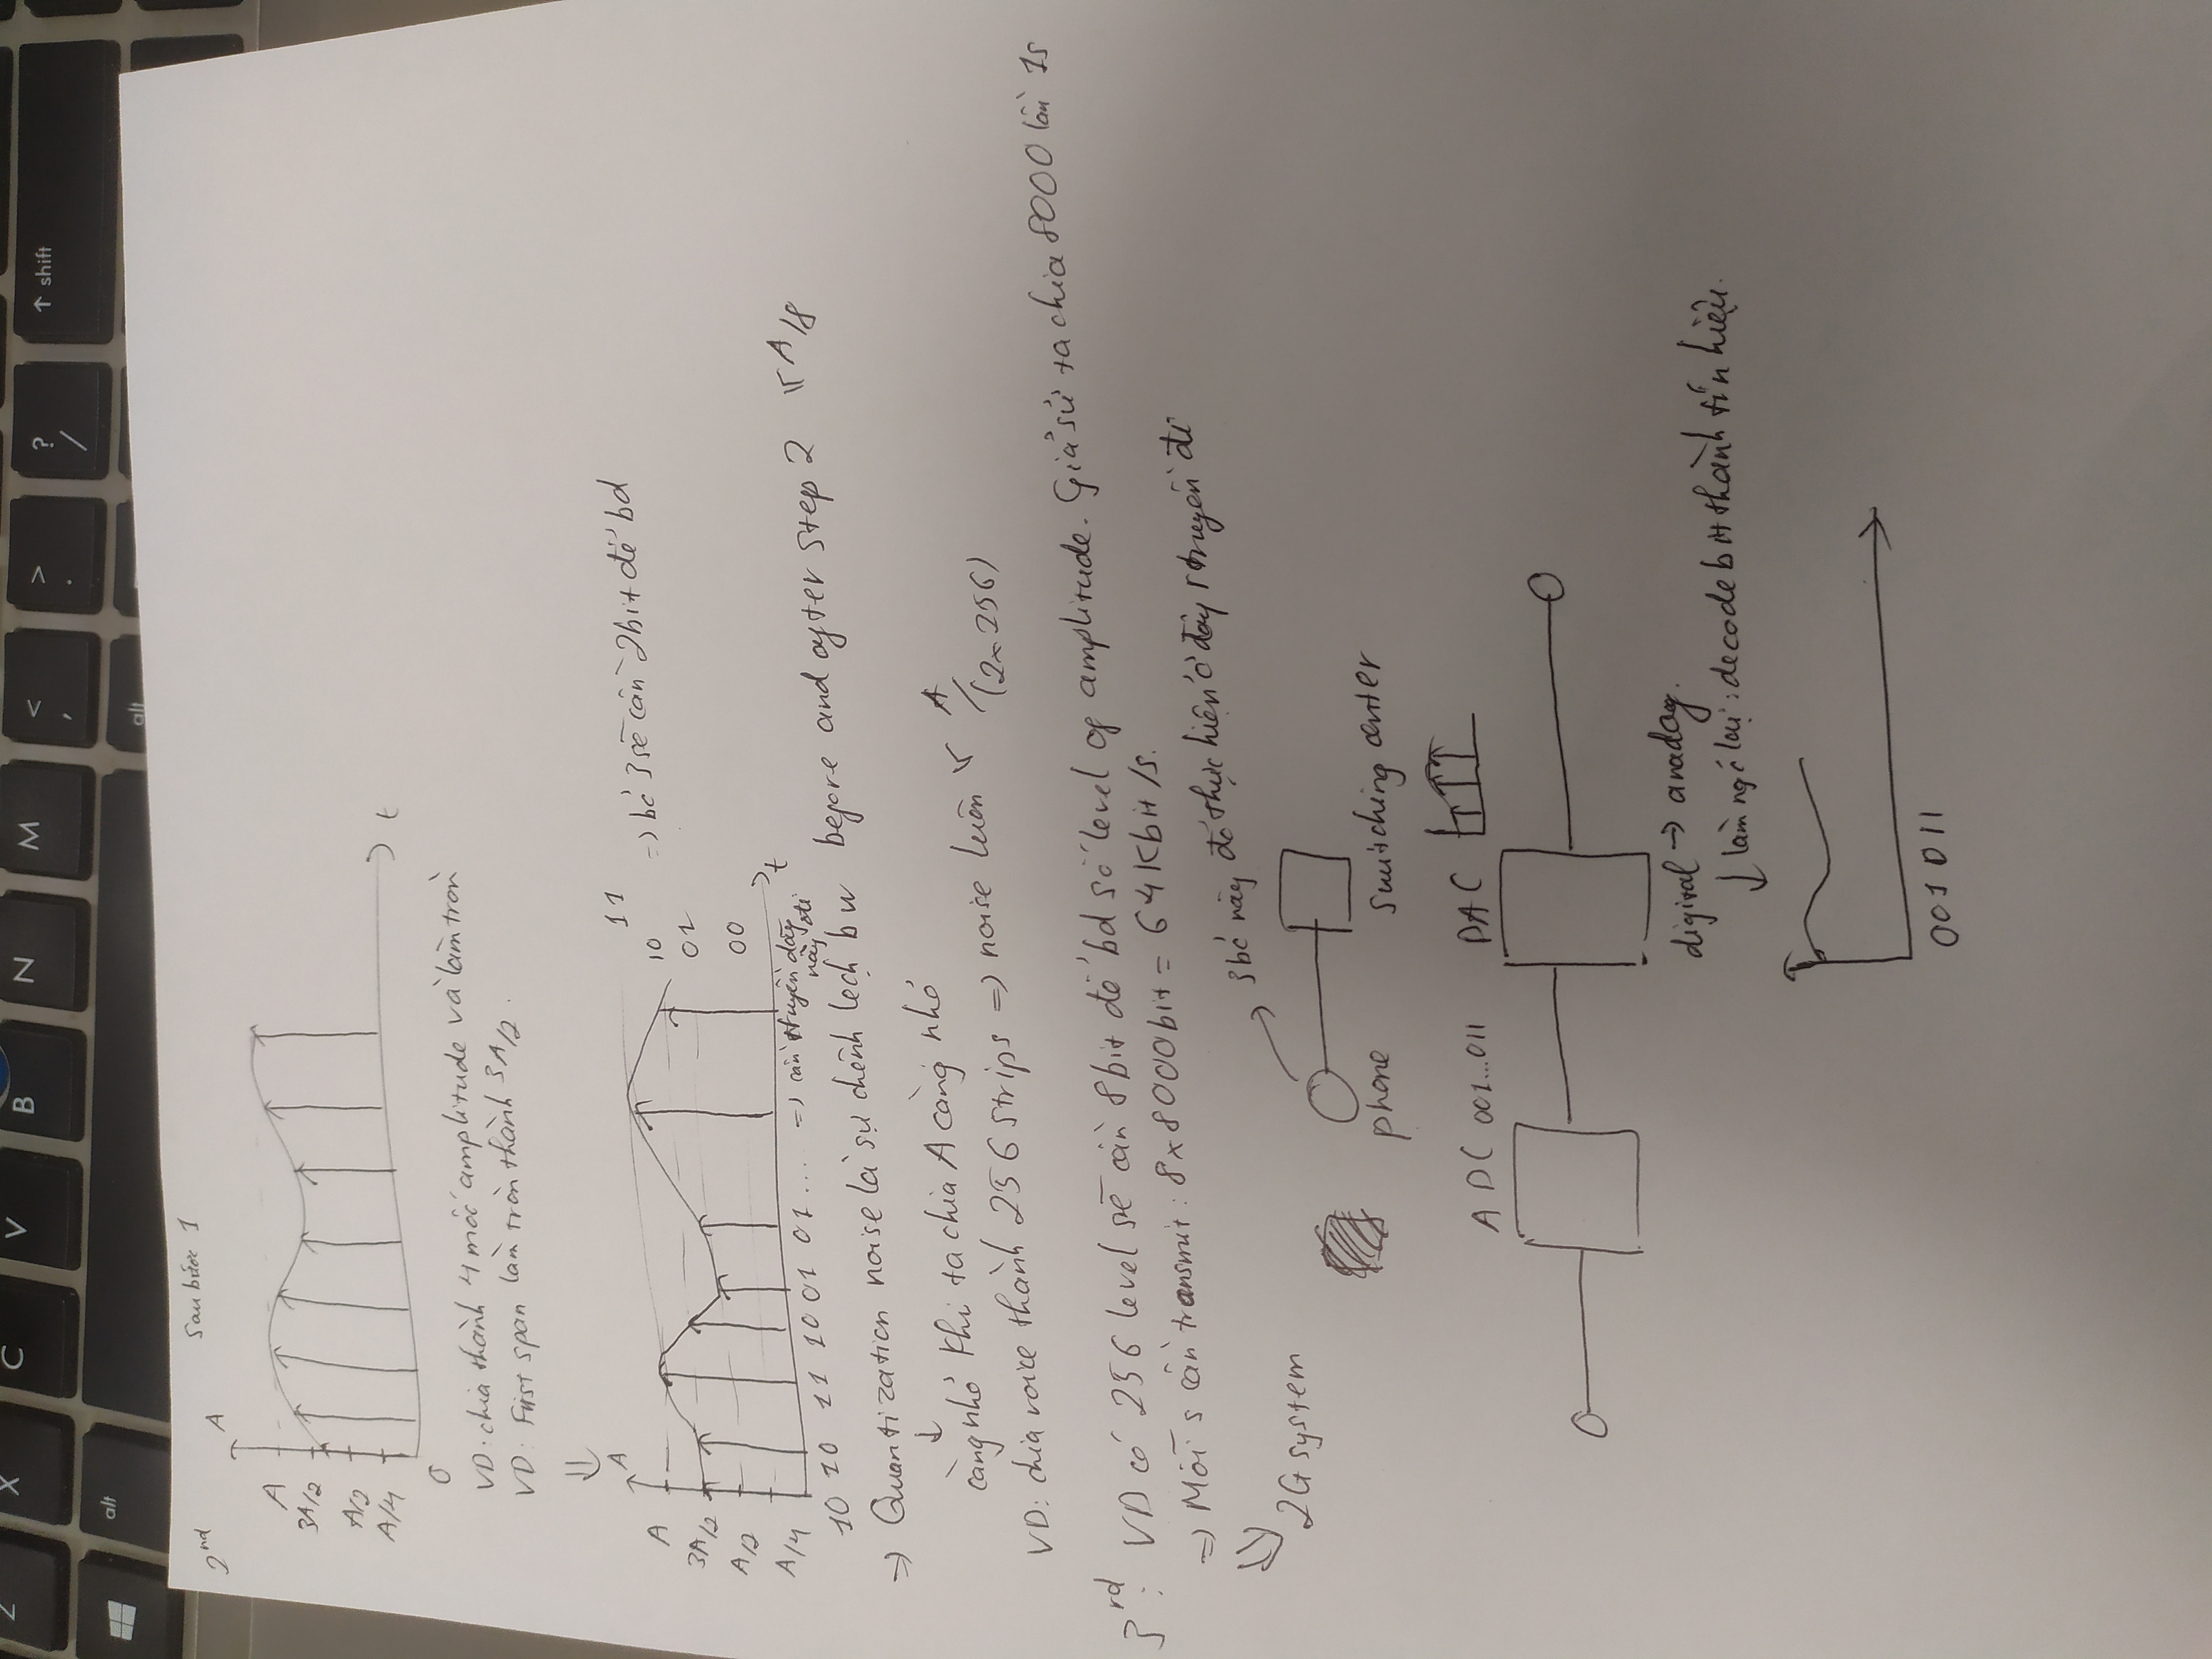 Z X C V B N M < , > . ? / ↑ shift
alt alt
2nd Sau bước 1
A
A
3A/2
A/2
A/4
t
0
VD: chia thành 4 mốc amplitude và làm tròn
VD: First span làm tròn thành 3A/2.
⇓
A
A
3A/2
A/2
A/4
11
10
01
00
=> bć 3 sẽ cần 2bit để bd
t
10 10 11 10 01 01 .... => cần truyền dãy
này đi
=> Quantization noise là sự chênh lệch bw before and after step 2 < A/8
↓
càng nhỏ khi ta chia A càng nhỏ
VD: chia voice thành 256 strips => noise luôn < A/(2x256)
3rd: VD có 256 level sẽ cần 8bit để bd số level of amplitude. Giả sử ta chia 8000 lần 1s
=> Mỗi s cần transmit: 8x8000bit = 64Kbit/s.
⇓ 2G system
3bć này đć thực hiện ở đây r truyền đi
phone
switching center
ADC 001...011 DAC
digital → analog.
↓ làm ngć lại: decode bit thành tín hiệu.
001011